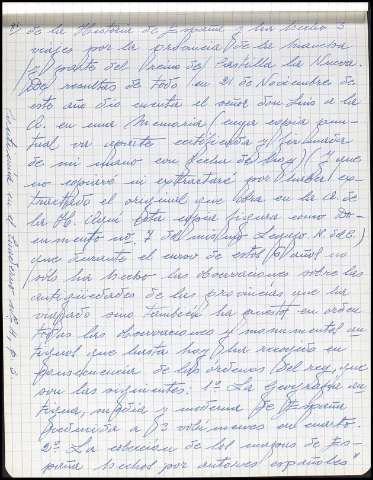 de la Historia de España y ha hecho 3
viajes por la provincia de la Mancha
y parte del Reino de Castilla la Nueva.
De resultas de todo en 21 de Noviembre de
este año dio cuenta el señor don Luis a la
A. en una Memoria (cuya copia puntual
va aparte certificada y firmada
de mi mano con fecha de hoy) (y que
no copiaré ni extractaré por haber extractado
el original que obra en la A. de
la H. Aquí esta copia figura como Documento
nº 7 del mismo Legajo
que durante el curso de estos 6 años no
sólo ha hecho las observaciones sobre las
antigüedades de las provincias que ha
viajado sino también ha puesto en orden
todas las observaciones y monumentos antiguos
que hasta hoy ha recogido en
consecuencia de las órdenes del rey, que
son las siguientes: 1º La Geografía antigua,
media y moderna de España
reducida a 3 volúmenes en cuarto.
2º La colección de los mapas de España
hechos por autores españoles"